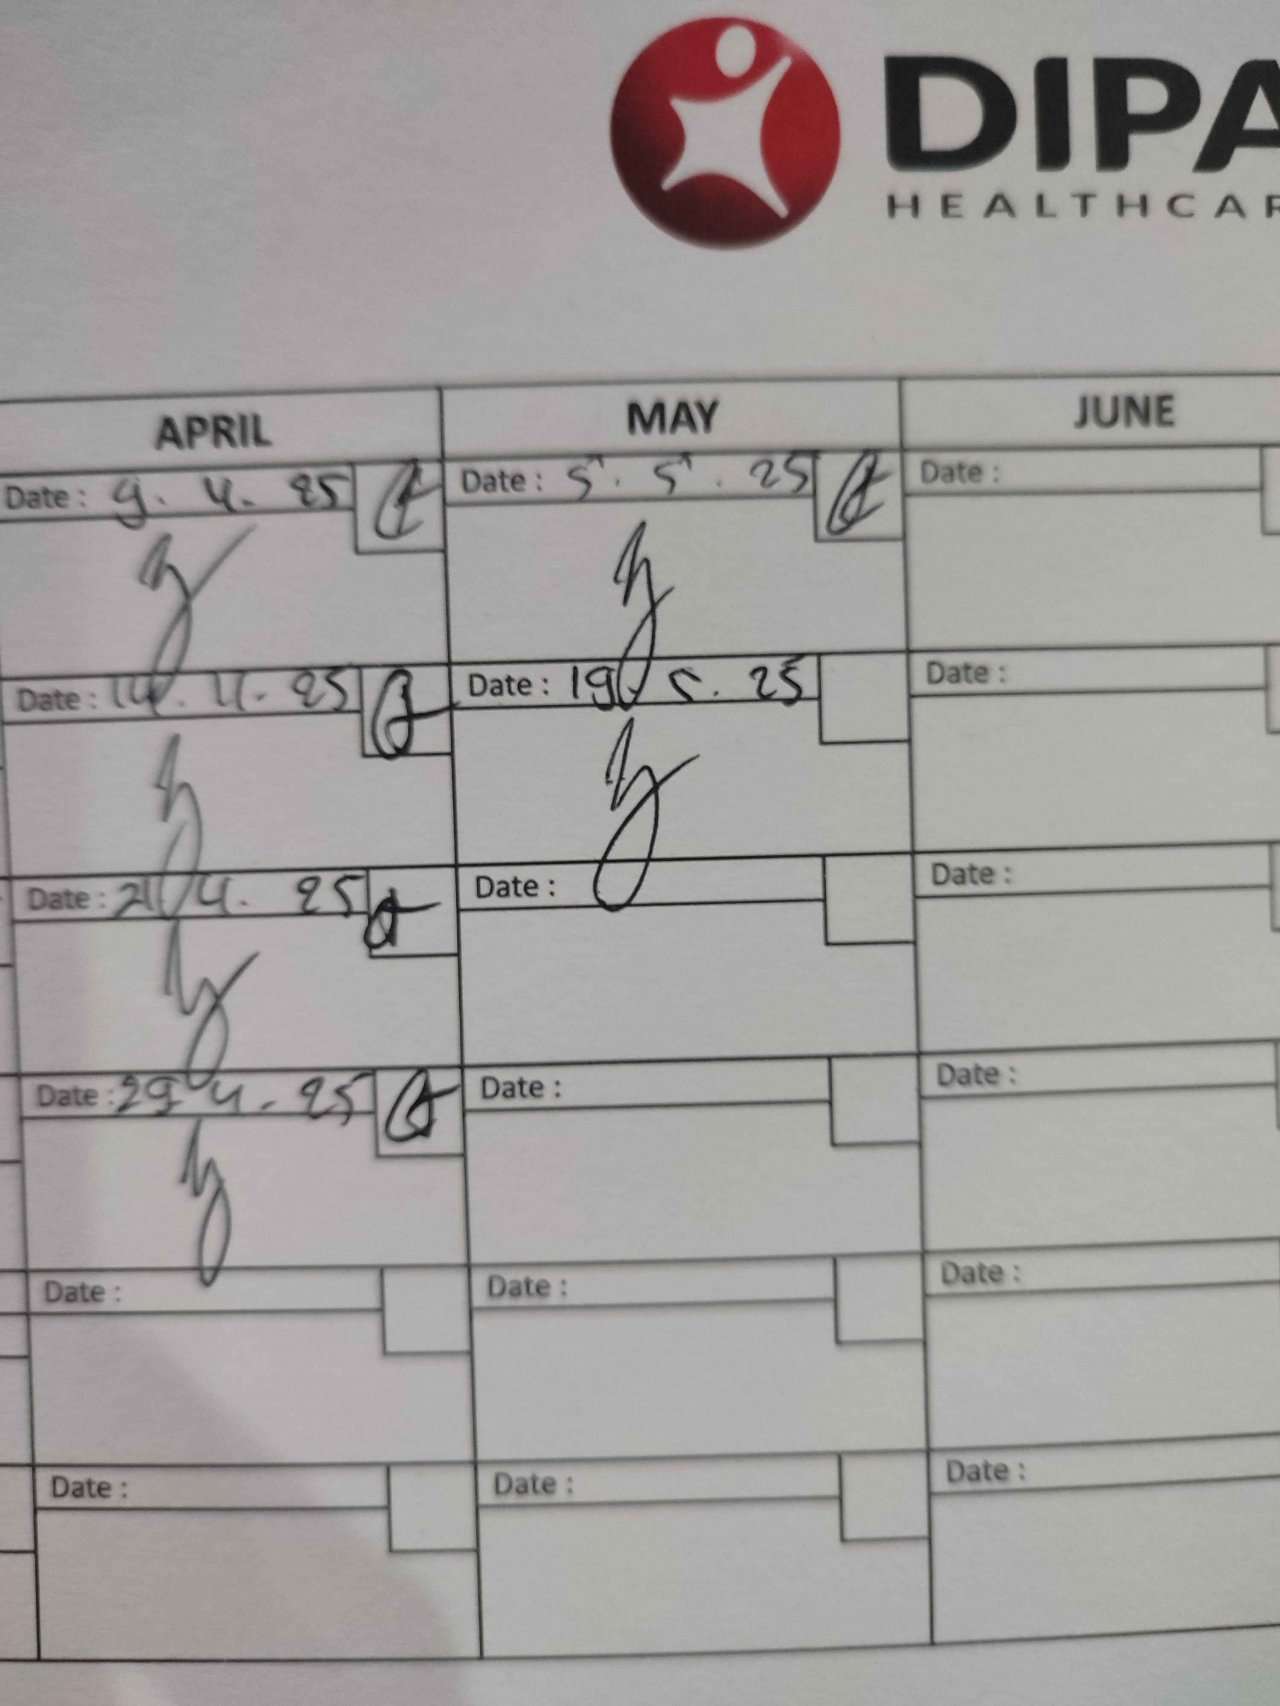 DIPA
HEALTHCAR
APRIL MAY JUNE
Date : 9. 4. 25 Date : 5. 5. 25 Date :
Date : 14. 4. 25 Date : 19. 5. 25 Date :
Date : 21 4. 25 Date : Date :
Date : 29 4. 25 Date : Date :
Date : Date : Date :
Date : Date : Date :